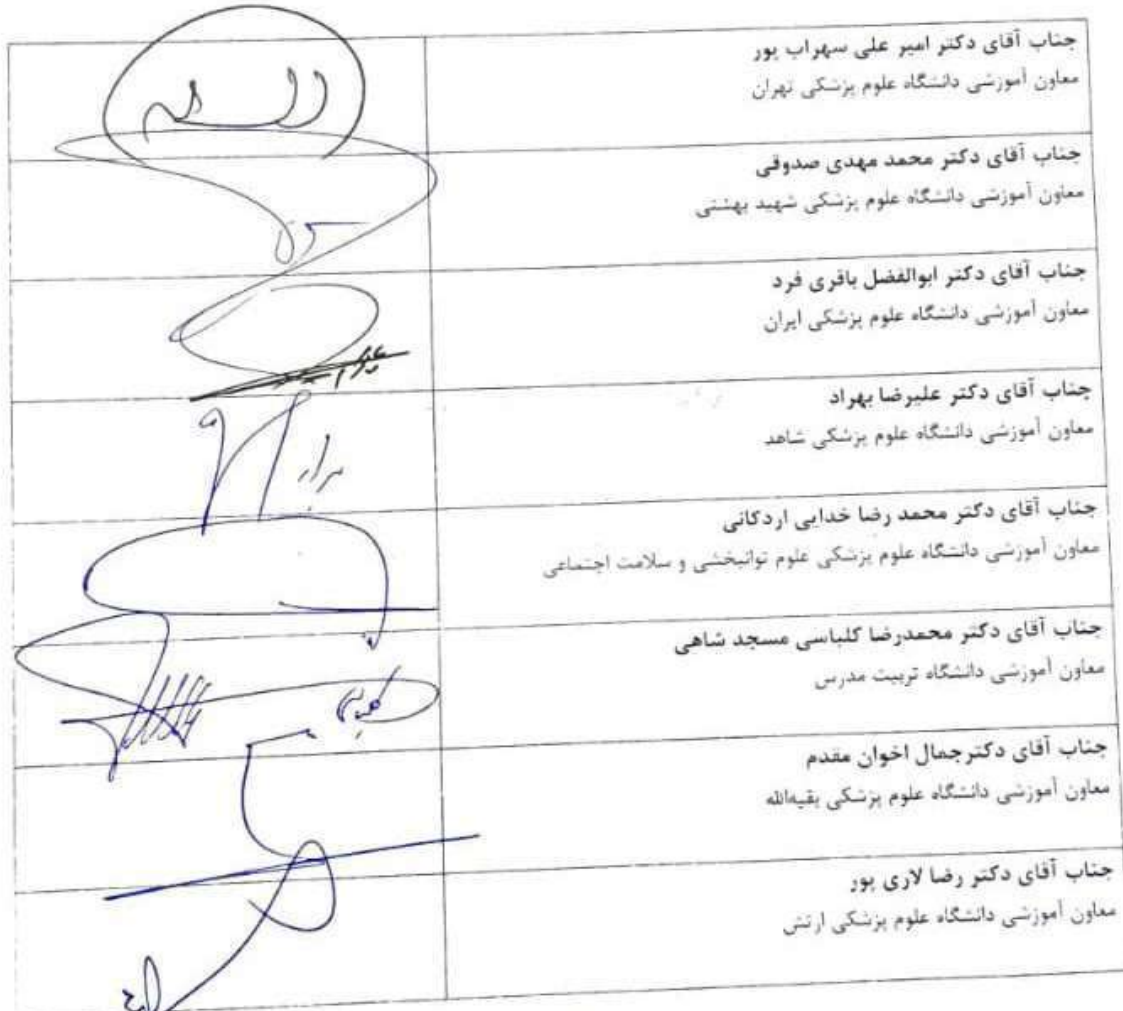 جناب آقای دکتر امیر علی سهراب پور
معاون آموزشی دانشگاه علوم پزشکی تهران
جناب آقای دکتر محمد مهدی صدوقی
معاون آموزشی دانشگاه علوم پزشکی شهید بهشتی
جناب آقای دکتر ابوالفضل باقری فرد
معاون آموزشی دانشگاه علوم پزشکی ایران
جناب آقای دکتر علیرضا بهراد
معاون آموزشی دانشگاه علوم پزشکی شاهد
جناب آقای دکتر محمد رضا خدایی اردکانی
معاون آموزشی دانشگاه علوم پزشکی علوم توانبخشی و سلامت اجتماعی
جناب آقای دکتر محمدرضا کلباسی مسجد شاهی
معاون آموزشی دانشگاه تربیت مدرس
جناب آقای دکترجمال اخوان مقدم
معاون آموزشی دانشگاه علوم پزشکی بقیه‌الله
جناب آقای دکتر رضا لاری پور
معاون آموزشی دانشگاه علوم پزشکی ارتش